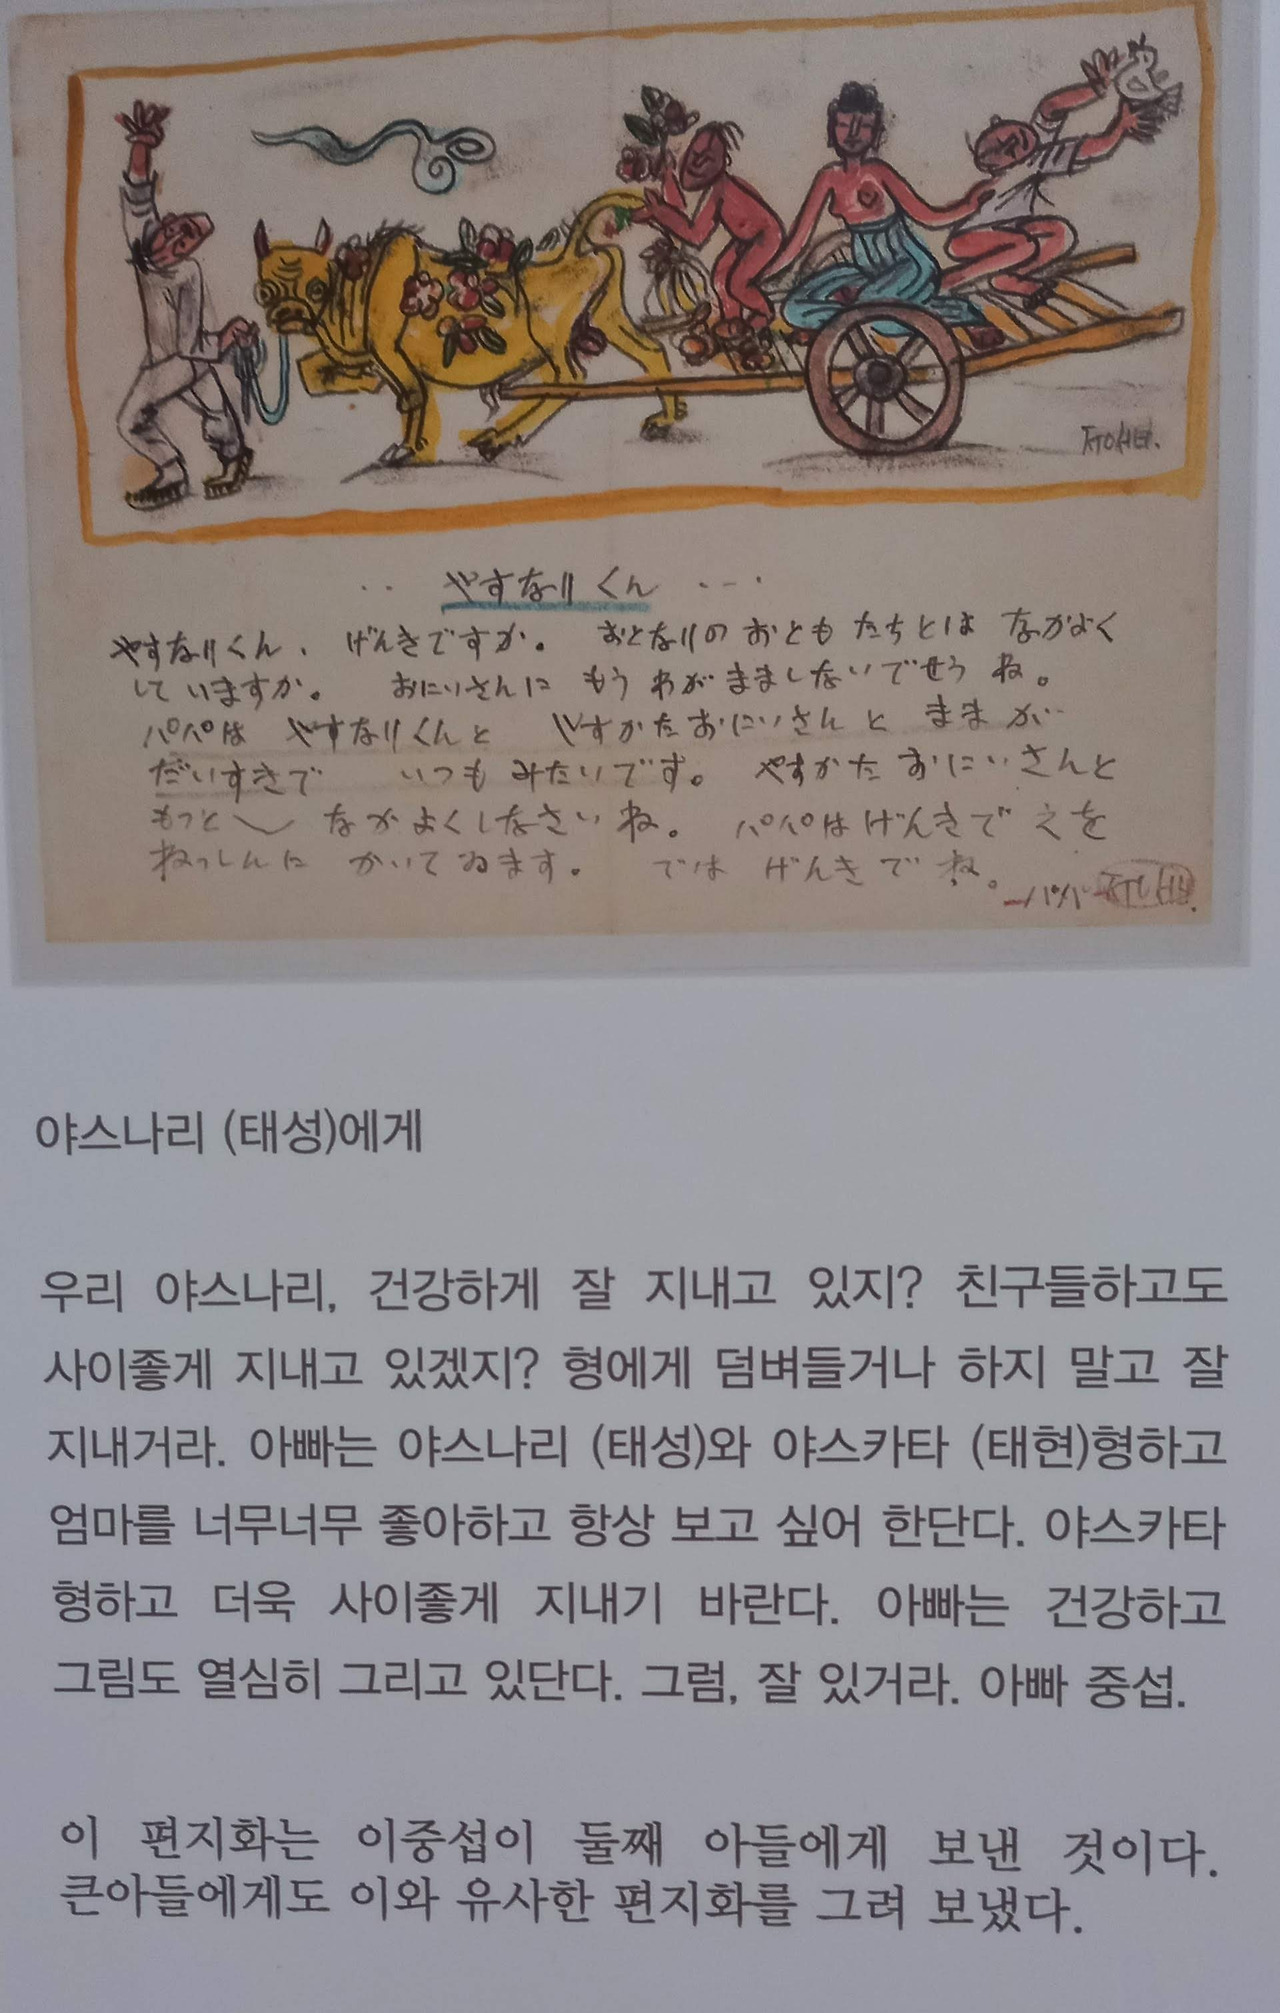 ㅈㅜㅇㅅㅓㅂ.
‥ やすなりくん ‥‥
やすなりくん、げんきですか。 おとなりの おともたちとは なかよく
して いますか。 おにいさんに もう わがまましないでせう ね。
パパは やすなりくんと やすかたおにいさんと ままが‥
だいすきで いつも みたいです。 やすかたおにいさんと
もっと〜 なかよくしなさいね。 パパはげんきで えを
ねっしんに かいてゐます。 では げんきで ね。
ーパパ ㅈㅜㅇㅅㅓㅂ.
야스나리 (태성)에게
우리 야스나리, 건강하게 잘 지내고 있지? 친구들하고도
사이좋게 지내고 있겠지? 형에게 덤벼들거나 하지 말고 잘
지내거라. 아빠는 야스나리 (태성)와 야스카타 (태현)형하고
엄마를 너무너무 좋아하고 항상 보고 싶어 한단다. 야스카타
형하고 더욱 사이좋게 지내기 바란다. 아빠는 건강하고
그림도 열심히 그리고 있단다. 그럼, 잘 있거라. 아빠 중섭.
이 편지화는 이중섭이 둘째 아들에게 보낸 것이다.
큰아들에게도 이와 유사한 편지화를 그려 보냈다.